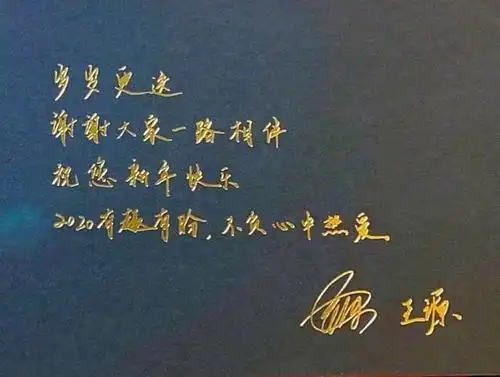 岁岁更迭
谢谢大家一路相伴
祝您新年快乐
2020有趣有盼，不负心中热爱。
王源